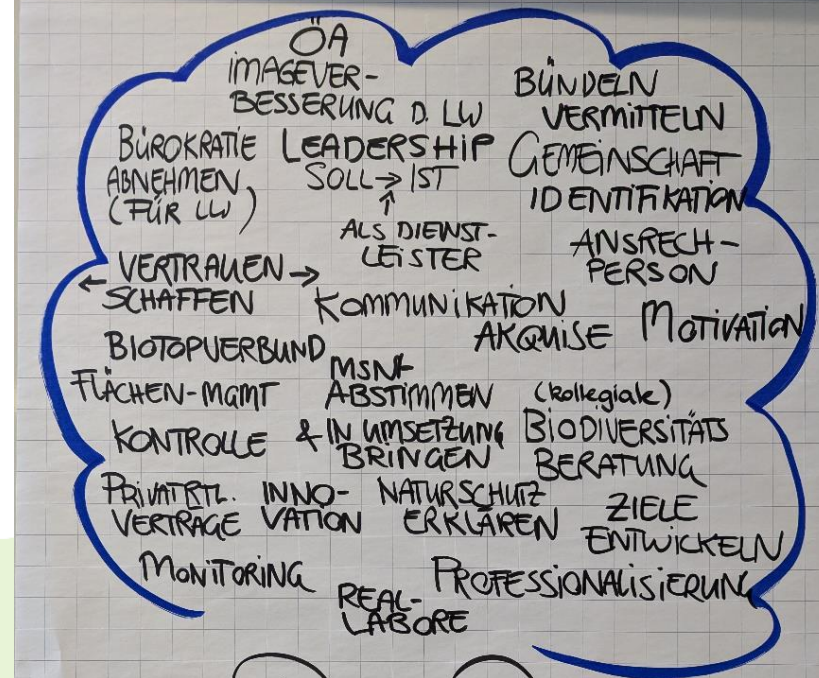 ÖA
IMAGEVER-
BESSERUNG D. LW
BÜNDELN
VERMITTELN
BÜROKRATIE
ABNEHMEN
(FÜR LW)
LEADERSHIP
SOLL → IST
↑
ALS DIENST-
LEISTER
GEMEINSCHAFT
IDENTIFIKATION
ANSRECH-
PERSON
← VERTRAUEN →
SCHAFFEN
KOMMUNIKATION
AKQUISE
MOTIVATION
BIOTOPVERBUND
FLÄCHEN-MGMT
MSNM
ABSTIMMEN
& IN UMSETZUNG
BRINGEN
(kollegiale)
BIODIVERSITÄTS
BERATUNG
KONTROLLE
PRIVATRTL.
VERTRÄGE
INNO-
VATION
NATURSCHUTZ
ERKLÄREN
ZIELE
ENTWICKELN
MONITORING
REAL-
LABORE
PROFESSIONALISIERUNG